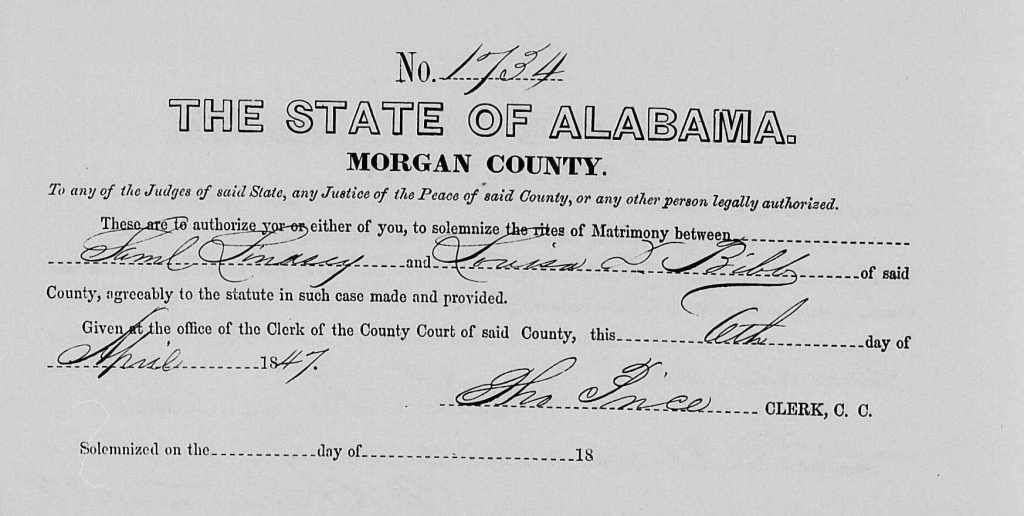 No. 1734
THE STATE OF ALABAMA.
MORGAN COUNTY.
To any of the Judges of said State, any Justice of the Peace of said County, or any other person legally authorized.
These are to authorize yor or either of you, to solemnize the rites of Matrimony between
Saml Lindsey and Louisa T Bibb of said
County, agreeably to the statute in such case made and provided.
Given at the office of the Clerk of the County Court of said County, this 6th day of
April 1847.
Tho Price CLERK, C. C.
Solemnized on the day of 18